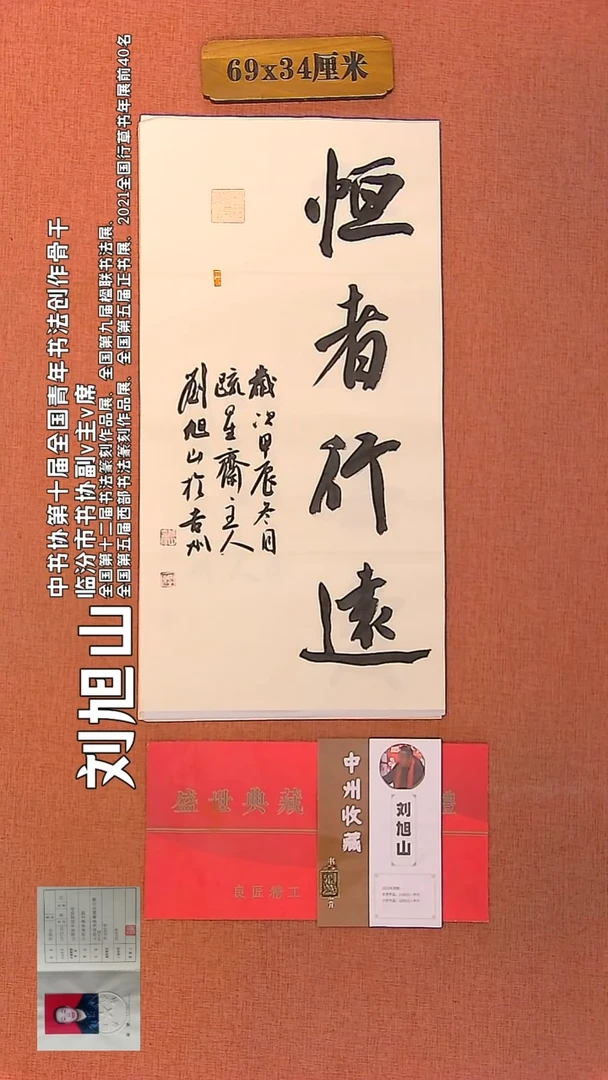 69x34厘米
恒者行遠
歲次甲辰冬月
疏星齋主人
劉旭山於吉州
中书协第十届全国青年书法创作骨干
临汾市书协副v主v席
全国第十二届书法篆刻作品展、全国第九届楹联书法展、
全国第五届西部书法篆刻作品展、全国第五届正书展、2021全国行草书年展前40名
刘旭山
盛世典藏
良匠精工
中州收藏
刘旭山